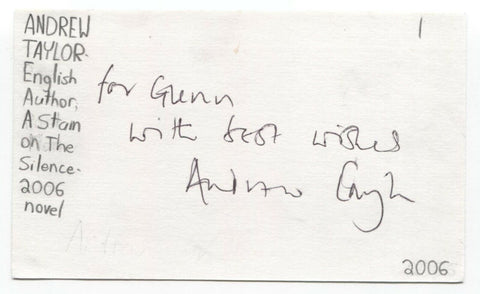 ANDREW
TAYLOR-
English
Author,
A Stain
on The
Silence-
2006
novel
1
for Glenn
with best wishes
Andrew Taylor
2006